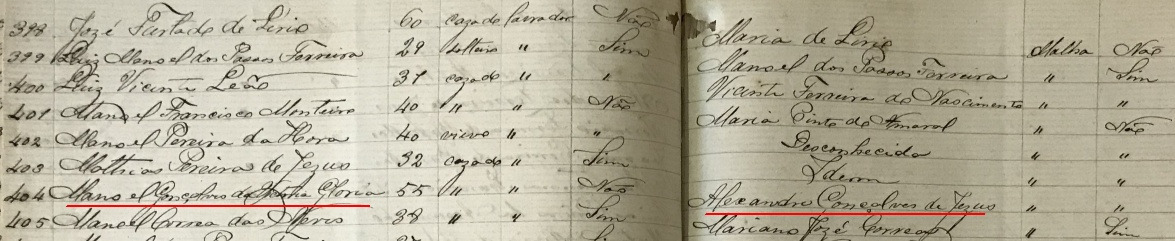 398 Jozé Furtado de Lirio 60 cazado lavrador Não Maria de Lirio Malha Não
399 Luiz Manoel dos Passos Ferreira 29 solteiro " Sim Manoel dos Passos Ferreira " Sim
400 Luiz Vicente Leão 37 cazado " " Vicente Ferreira do Nascimento " "
401 Manoel Francisco Monteiro 40 " " Não Maria Pinto do Amaral " Não
402 Manoel Pereira da Hora 40 viuvo " " Desconhecido " "
403 Mathias Pereira de Jezus 32 cazado " Sim Idem " "
404 Manoel Gonçalves da Gloria 55 " " Não Alexandre Gonçalves de Jezus " "
405 Manoel Correa das Neves 38 " " Sim Mariano Jozé Correa " Sim